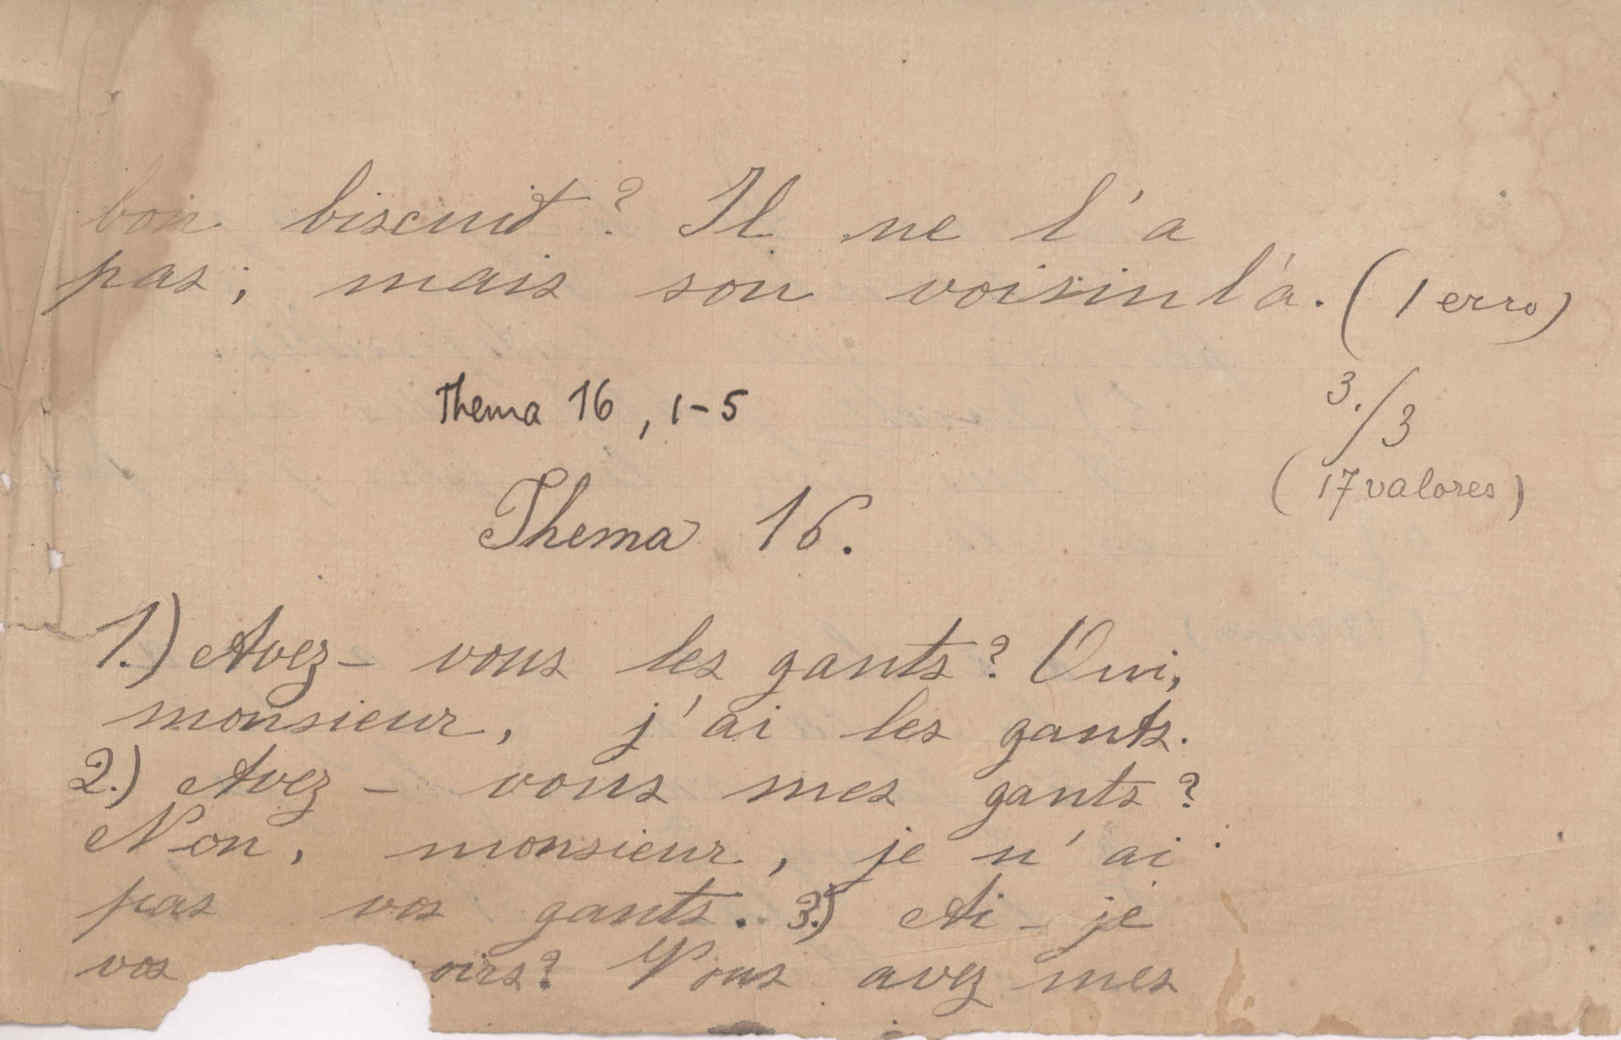 bon biscuit? Il ne l'a
pas; mais son voisin l'a. (1 erro)
Thema 16, 1-5
3./3
(17 valores)
Thema 16.
1.) Avez- vous les gants? Oui,
monsieur, j'ai les gants.
2.) Avez - vous mes gants?
Non, monsieur, je n'ai
pas vos gants. 3.) Ai - je
vos oirs? Vous avez mes